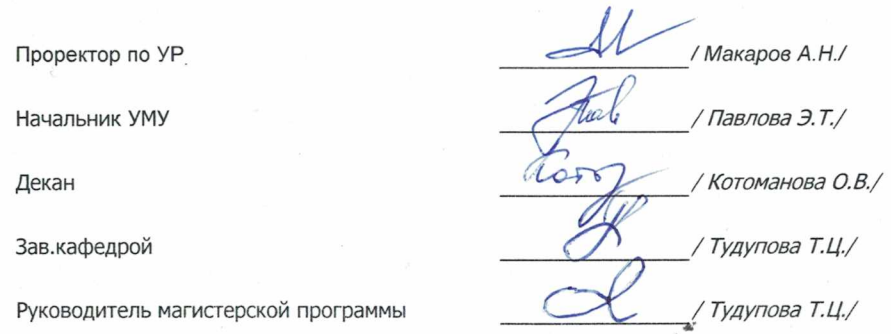 Проректор по УР / Макаров А.Н./
Начальник УМУ / Павлова Э.Т./
Декан / Котоманова О.В./
Зав.кафедрой / Тудупова Т.Ц./
Руководитель магистерской программы / Тудупова Т.Ц./